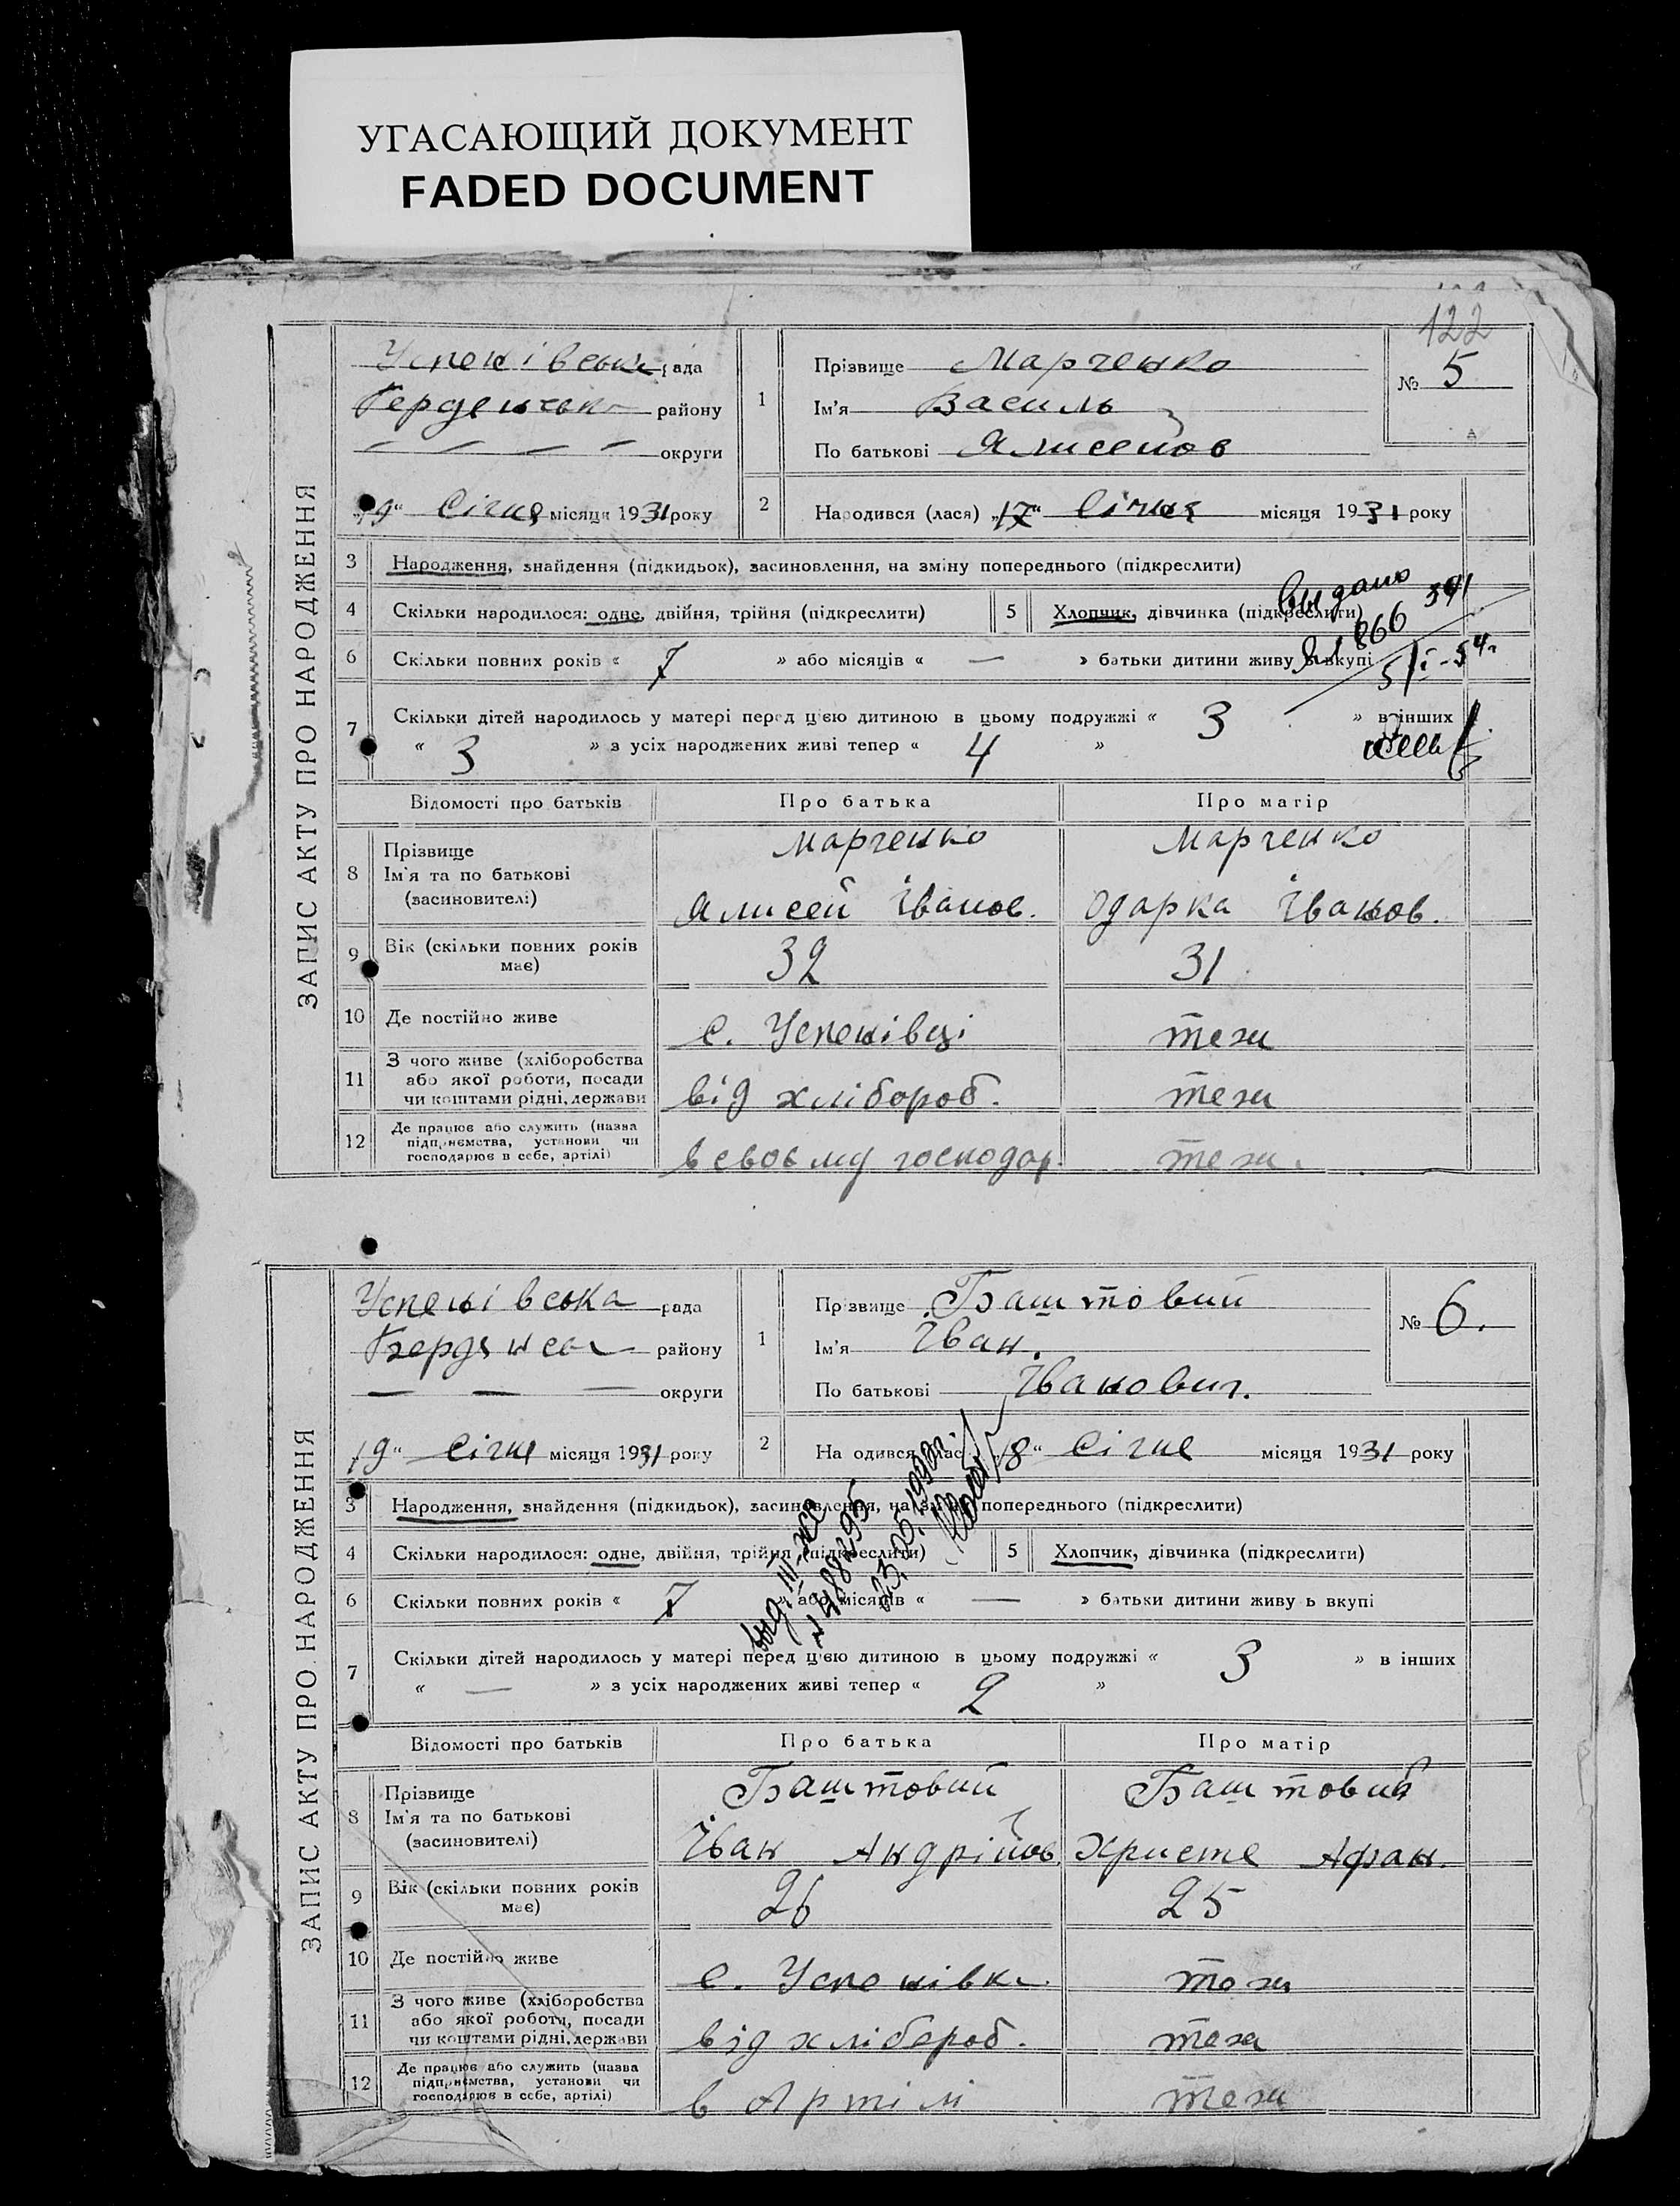 УГАСАЮЩИЙ ДОКУМЕНТ
FADED DOCUMENT
122
ЗАПИС АКТУ ПРО НАРОДЖЕННЯ
Успенівська рада
району
— — — — округи
"19" Січня місяця 1931 року
1
Прізвище Марченко
Ім'я Василь
По батькові Алисейов
№ 5
2
Народився (лася) "17" Січня місяця 1931 року
3 Народження, знайдення (підкидьок), засиновлення, на зміну попереднього (підкреслити)
4 Скільки народилося: одне, двійня, трійня (підкреслити)
5 Хлопчик, дівчинка (підкреслити)
6 Скільки повних років « 7 » або місяців « — » батьки дитини живуть вкупі
7 Скільки дітей народилось у матері перед цією дитиною в цьому подружжі « 3 » в інших
« 3 » з усіх народжених живі тепер « 4 »
Видано
866
Відомості про батьків Про батька Про матір
8 Прізвище Марченко Марченко
Ім'я та по батькові
(засновителі) Алисей Іванов. Одарка Іванов.
9 Вік (скільки повних років має) 32 31
10 Де постійно живе с. Успенівці теж
11 З чого живе (хліборобства
або якої роботи, посади
чи коштами рідні, держави від хлібороб. теж
12 Де працює або служить (назва
підприємства, установи чи
господарює в себе, артілі) в своєму господар. теж.
ЗАПИС АКТУ ПРО НАРОДЖЕННЯ
Успенівська рада
району
— — — округи
"19" Січня місяця 1931 року
1
Прізвище Баштовий
Ім'я Іван.
По батькові Іванович.
№ 6.
2
Народився (лася) "18" Січня місяця 1931 року
3 Народження, знайдення (підкидьок), засиновлення, на зміну попереднього (підкреслити)
4 Скільки народилося: одне, двійня, трійня (підкреслити)
5 Хлопчик, дівчинка (підкреслити)
6 Скільки повних років « 7 » або місяців « — » батьки дитини живуть вкупі
7 Скільки дітей народилось у матері перед цією дитиною в цьому подружжі « 3 » в інших
« — » з усіх народжених живі тепер « 2 »
Відомості про батьків Про батька Про матір
8 Прізвище Баштовий Баштовий
Ім'я та по батькові
(засиновителі) Іван Андрійов. Христе Афан.
9 Вік (скільки повних років має) 26 25
10 Де постійно живе с. Успенівка теж
11 З чого живе (хліборобства
або якої роботи, посади
чи коштами рідні, держави від хлібороб. теж
12 Де працює або служить (назва
підприємства, установи чи
господарює в себе, артілі) в Артілі теж